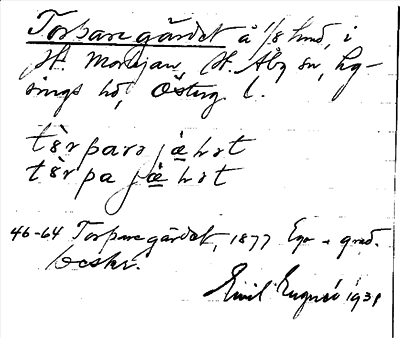 Torparegärdet å 1/8 hmd, i
St. Morejan, St. Åby sn, Ly-
sings hd, Österg l.
tèrpara jæ̱hɜt
tèrpa jæ̱hɜt
46-64 Torparegärdet, 1877 Ego- o grad.
beskr.
Emil 1931